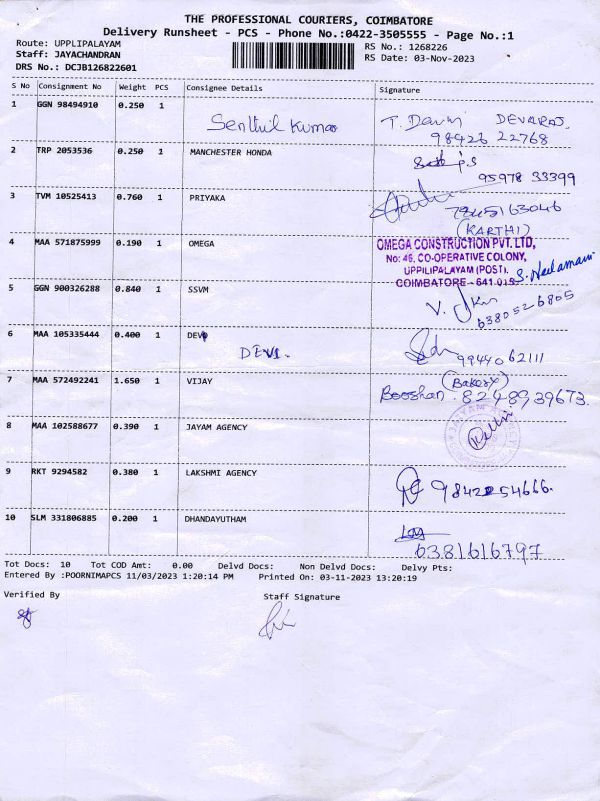 THE PROFESSIONAL COURIERS, COIMBATORE
Delivery Runsheet - PCS - Phone No.:0422-3505555 - Page No.:1
Route: UPPLIPALAYAM
RS No.: 1268226
Staff: JAYACHANDRAN
RS Date: 03-Nov-2023
DRS No.: DCJB126822601
S No Consignment No Weight PCS Consignee Details Signature
1 GGN 98494910 0.250 1 Senthil Kumar T. Devaraj
98426 22768
2 TRP 2053536 0.250 1 MANCHESTER HONDA
95978 33399
3 TVM 10525413 0.760 1 PRIYAKA
(KARTHI)
4 MAA 571875999 0.190 1 OMEGA OMEGA CONSTRUCTION PVT. LTD,
No: 46, CO-OPERATIVE COLONY,
UPPILIPALAYAM (POST),
COIMBATORE - 641 015 S. Neelamani
5 GGN 900326288 0.840 1 SSVM
6380526805
6 MAA 105335444 0.400 1 DEVI
DEVI. 9944062111
7 MAA 572492241 1.650 1 VIJAY (Bakery)
Booshan. 8248939673.
8 MAA 102588677 0.390 1 JAYAM AGENCY
9 RKT 9294582 0.380 1 LAKSHMI AGENCY 9842254666.
10 SLM 331806885 0.200 1 DHANDAYUTHAM
6381616797
Tot Docs: 10 Tot COD Amt: 0.00 Delvd Docs: Non Delvd Docs: Delvy Pts:
Entered By :POORNIMAPCS 11/03/2023 1:20:14 PM Printed On: 03-11-2023 13:20:19
Verified By Staff Signature